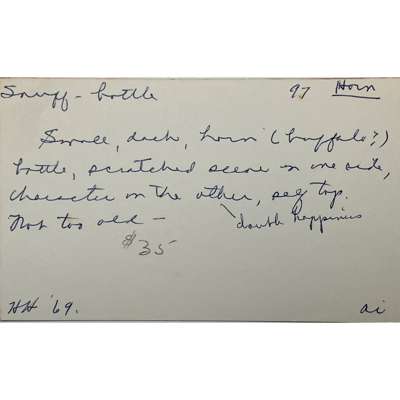 Snuff-bottle 97 Horn
Small, dark, horn (buffalo?)
bottle, scratched scene on one side,
character on the other, seg top.
Not too old -
double happiness
$35
HH '69. ai